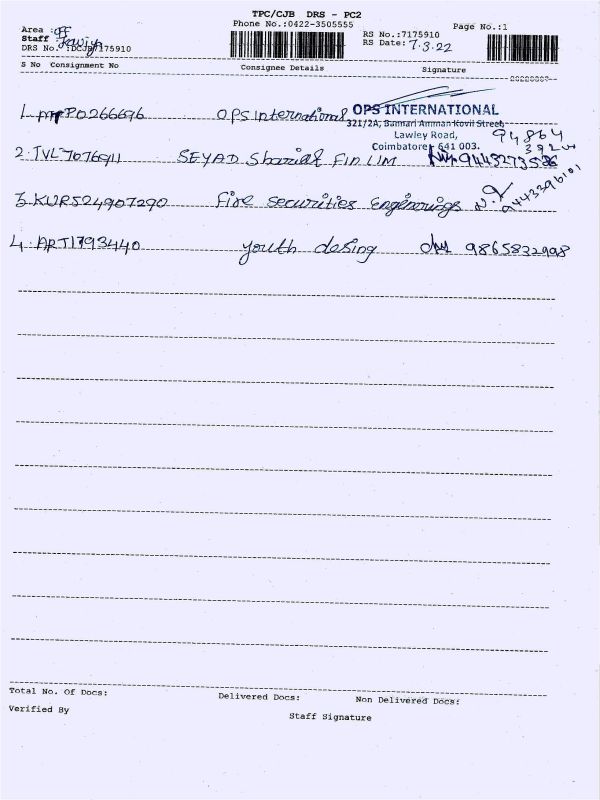 TPC/CJB DRS - PC2
Phone No.:0422-3505555
Page No.:1
Area : off
Staff :
DRS No. :DCJB7175910
RS No.:7175910
RS Date: 7.3.22
S No Consignment No Consignee Details Signature
1. P0266696 OPS International
OPS INTERNATIONAL
321/2A, Bannari Amman Kovil Street,
Lawley Road,
Coimbatore - 641 003.
94864
2. TVL7076911 SEYAD Shariah Fin LIM 9443273536
3. KUR524907290 Fire securities Enginerings 9443396101
4. ART1793440 youth desing 9865832998
Total No. Of Docs: Delivered Docs: Non Delivered Docs:
Verified By Staff Signature